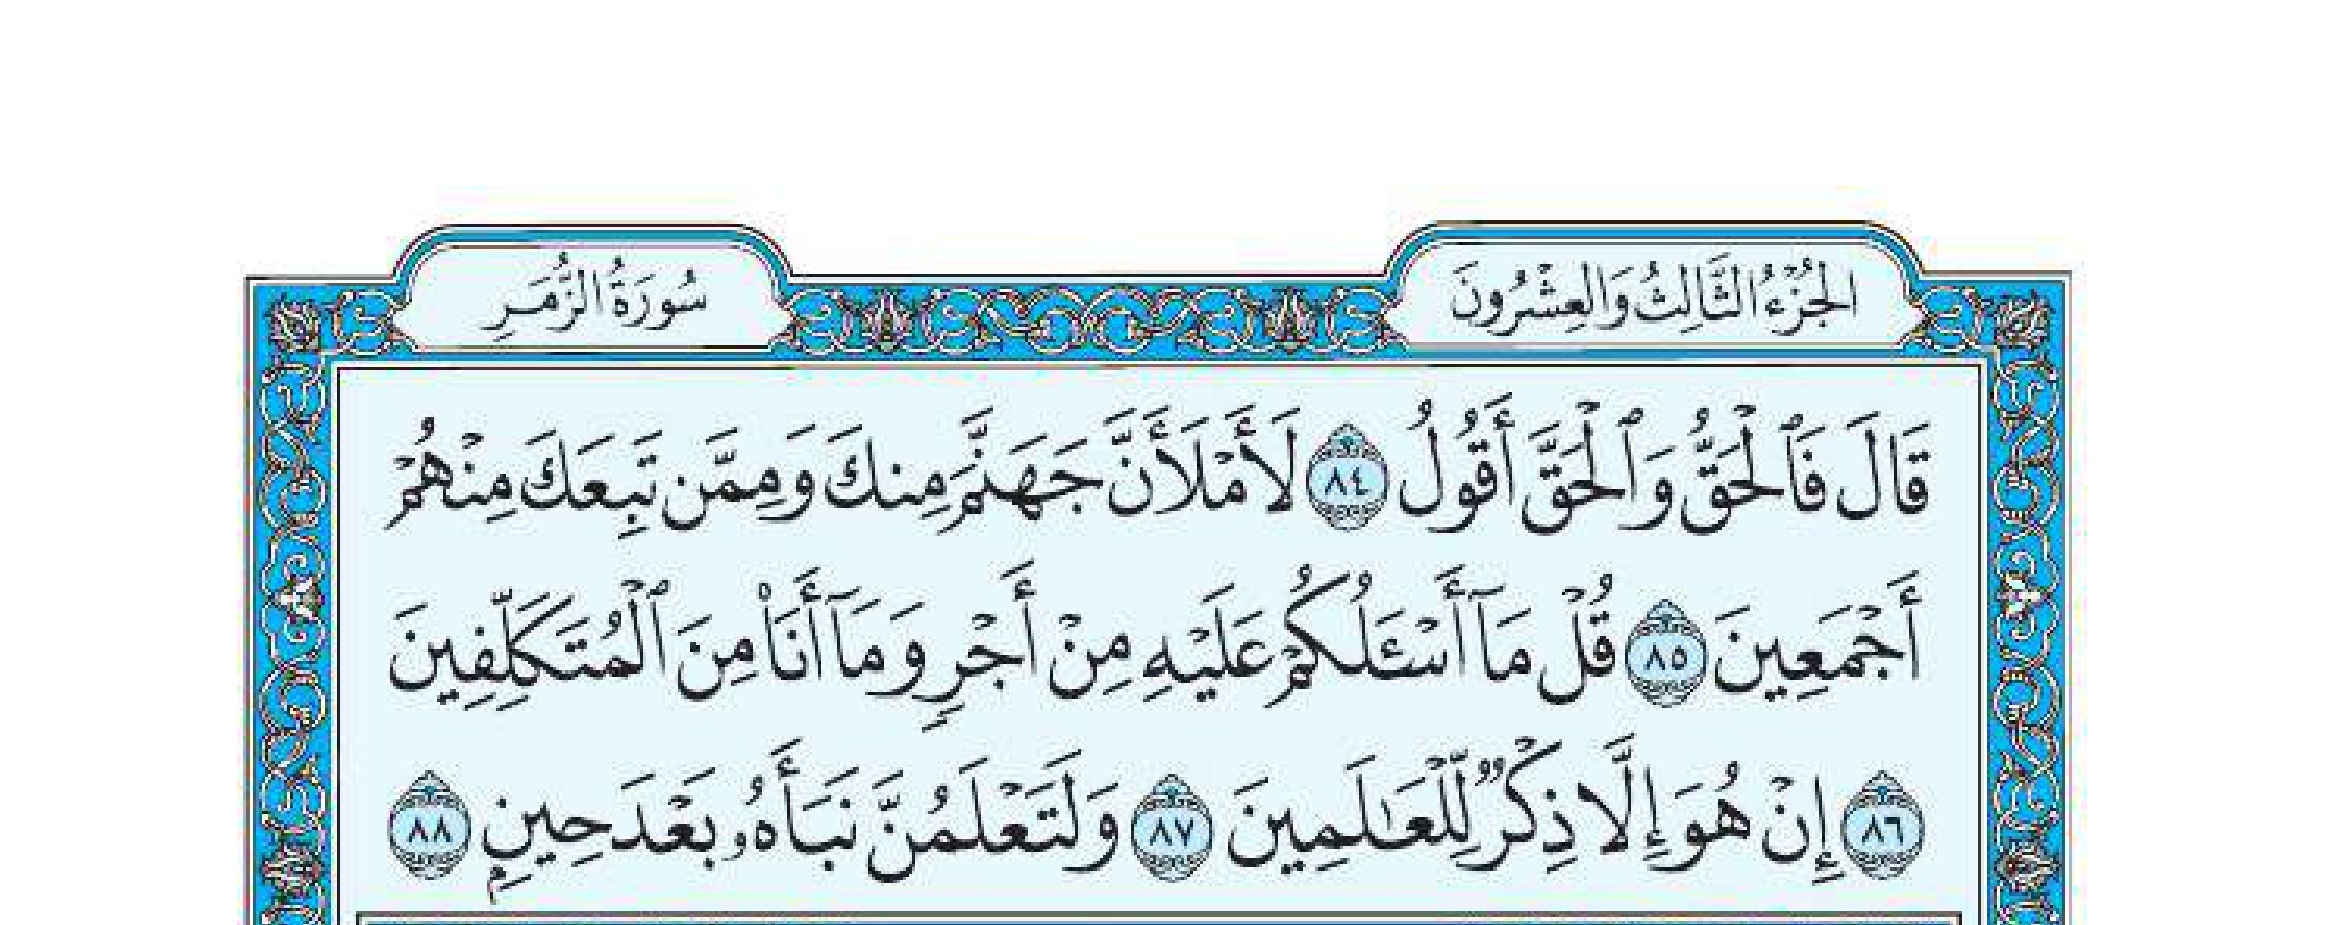 الجُزْءُ الثَّالِثُ وَالعِشْرُونَ
سُورَةُ الزُّمَرِ
قَالَ فَٱلْحَقُّ وَٱلْحَقَّ أَقُولُ ٨٤ لَأَمْلَأَنَّ جَهَنَّمَ مِنكَ وَمِمَّن تَبِعَكَ مِنْهُمْ
أَجْمَعِينَ ٨٥ قُلْ مَآ أَسْـَٔلُكُمْ عَلَيْهِ مِنْ أَجْرٍ وَمَآ أَنَا۠ مِنَ ٱلْمُتَكَلِّفِينَ
٨٦ إِنْ هُوَ إِلَّا ذِكْرٌ لِّلْعَـٰلَمِينَ ٨٧ وَلَتَعْلَمُنَّ نَبَأَهُۥ بَعْدَ حِينٍۭ ٨٨